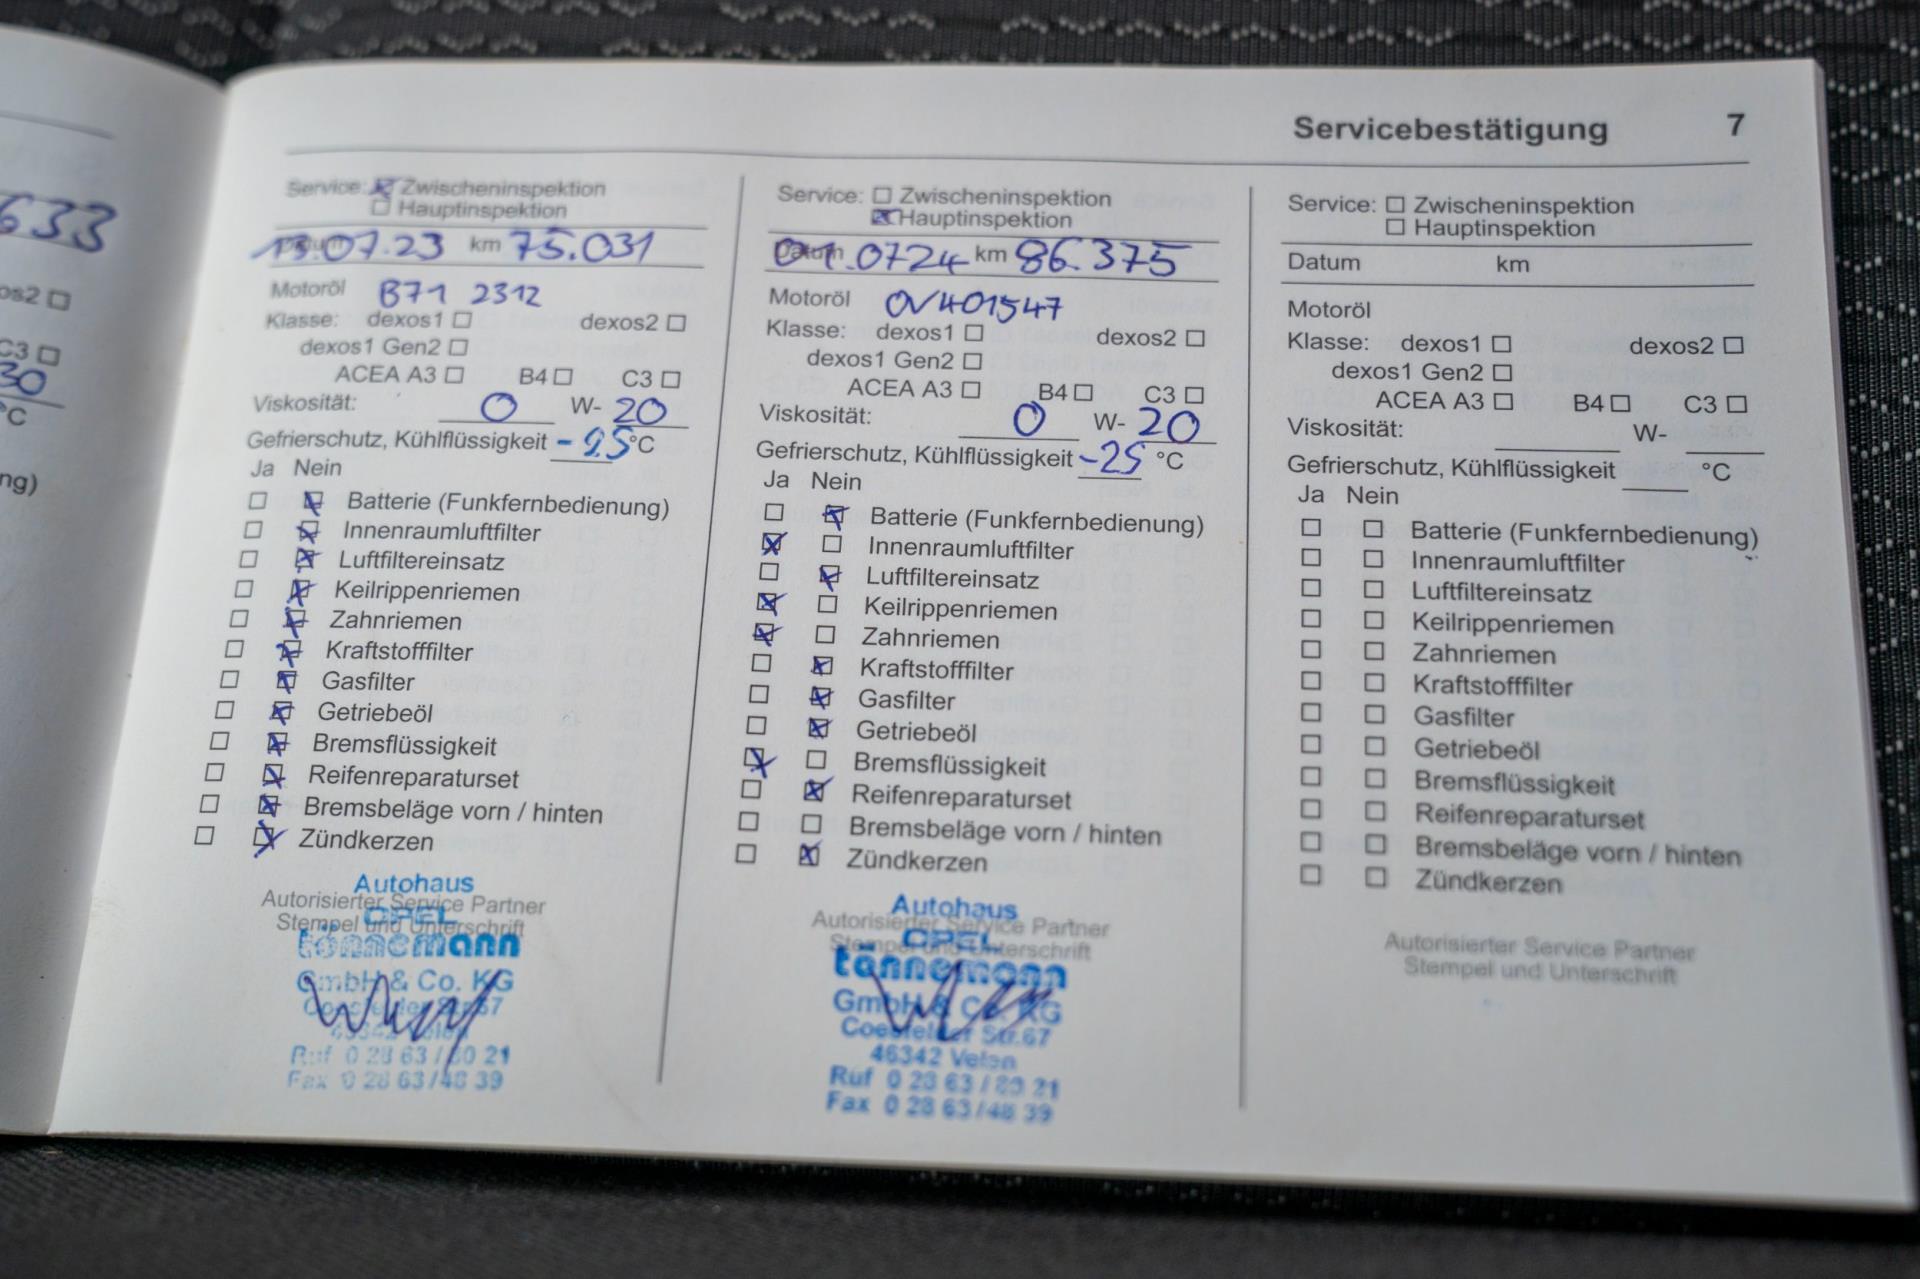 633
os2 ☐
C3 ☐
30
°C
ng)
Servicebestätigung 7
Service: ☒ Zwischeninspektion
☐ Hauptinspektion
Datum 13.07.23 km 75.031
Motoröl B71 2312
Klasse: dexos1 ☐ dexos2 ☐
dexos1 Gen2 ☐
ACEA A3 ☐ B4 ☐ C3 ☐
Viskosität: 0 W- 20
Gefrierschutz, Kühlflüssigkeit -25 °C
Ja Nein
☐ ☒ Batterie (Funkfernbedienung)
☐ ☒ Innenraumluftfilter
☐ ☒ Luftfiltereinsatz
☐ ☒ Keilrippenriemen
☐ ☒ Zahnriemen
☐ ☒ Kraftstofffilter
☐ ☒ Gasfilter
☐ ☒ Getriebeöl
☐ ☒ Bremsflüssigkeit
☐ ☒ Reifenreparaturset
☐ ☒ Bremsbeläge vorn / hinten
☐ ☒ Zündkerzen
Autorisierter Service Partner
Stempel und Unterschrift
Autohaus
OPEL
tönnemann
GmbH & Co. KG
Coesfelder Str.67
46342 Velen
Ruf 0 28 63 / 80 21
Fax 0 28 63 / 48 39
Service: ☐ Zwischeninspektion
☒ Hauptinspektion
Datum 01.0724 km 86.375
Motoröl OV401547
Klasse: dexos1 ☐ dexos2 ☐
dexos1 Gen2 ☐
ACEA A3 ☐ B4 ☐ C3 ☐
Viskosität: 0 W- 20
Gefrierschutz, Kühlflüssigkeit -25 °C
Ja Nein
☐ ☒ Batterie (Funkfernbedienung)
☒ ☐ Innenraumluftfilter
☐ ☒ Luftfiltereinsatz
☒ ☐ Keilrippenriemen
☒ ☐ Zahnriemen
☐ ☒ Kraftstofffilter
☐ ☒ Gasfilter
☐ ☒ Getriebeöl
☒ ☐ Bremsflüssigkeit
☐ ☒ Reifenreparaturset
☐ ☐ Bremsbeläge vorn / hinten
☐ ☒ Zündkerzen
Autorisierter Service Partner
Stempel und Unterschrift
Autohaus
OPEL
tönnemann
GmbH & Co. KG
Coesfelder Str.67
46342 Velen
Ruf 0 28 63 / 80 21
Fax 0 28 63 / 48 39
Service: ☐ Zwischeninspektion
☐ Hauptinspektion
Datum km
Motoröl
Klasse: dexos1 ☐ dexos2 ☐
dexos1 Gen2 ☐
ACEA A3 ☐ B4 ☐ C3 ☐
Viskosität: W-
Gefrierschutz, Kühlflüssigkeit °C
Ja Nein
☐ ☐ Batterie (Funkfernbedienung)
☐ ☐ Innenraumluftfilter
☐ ☐ Luftfiltereinsatz
☐ ☐ Keilrippenriemen
☐ ☐ Zahnriemen
☐ ☐ Kraftstofffilter
☐ ☐ Gasfilter
☐ ☐ Getriebeöl
☐ ☐ Bremsflüssigkeit
☐ ☐ Reifenreparaturset
☐ ☐ Bremsbeläge vorn / hinten
☐ ☐ Zündkerzen
Autorisierter Service Partner
Stempel und Unterschrift